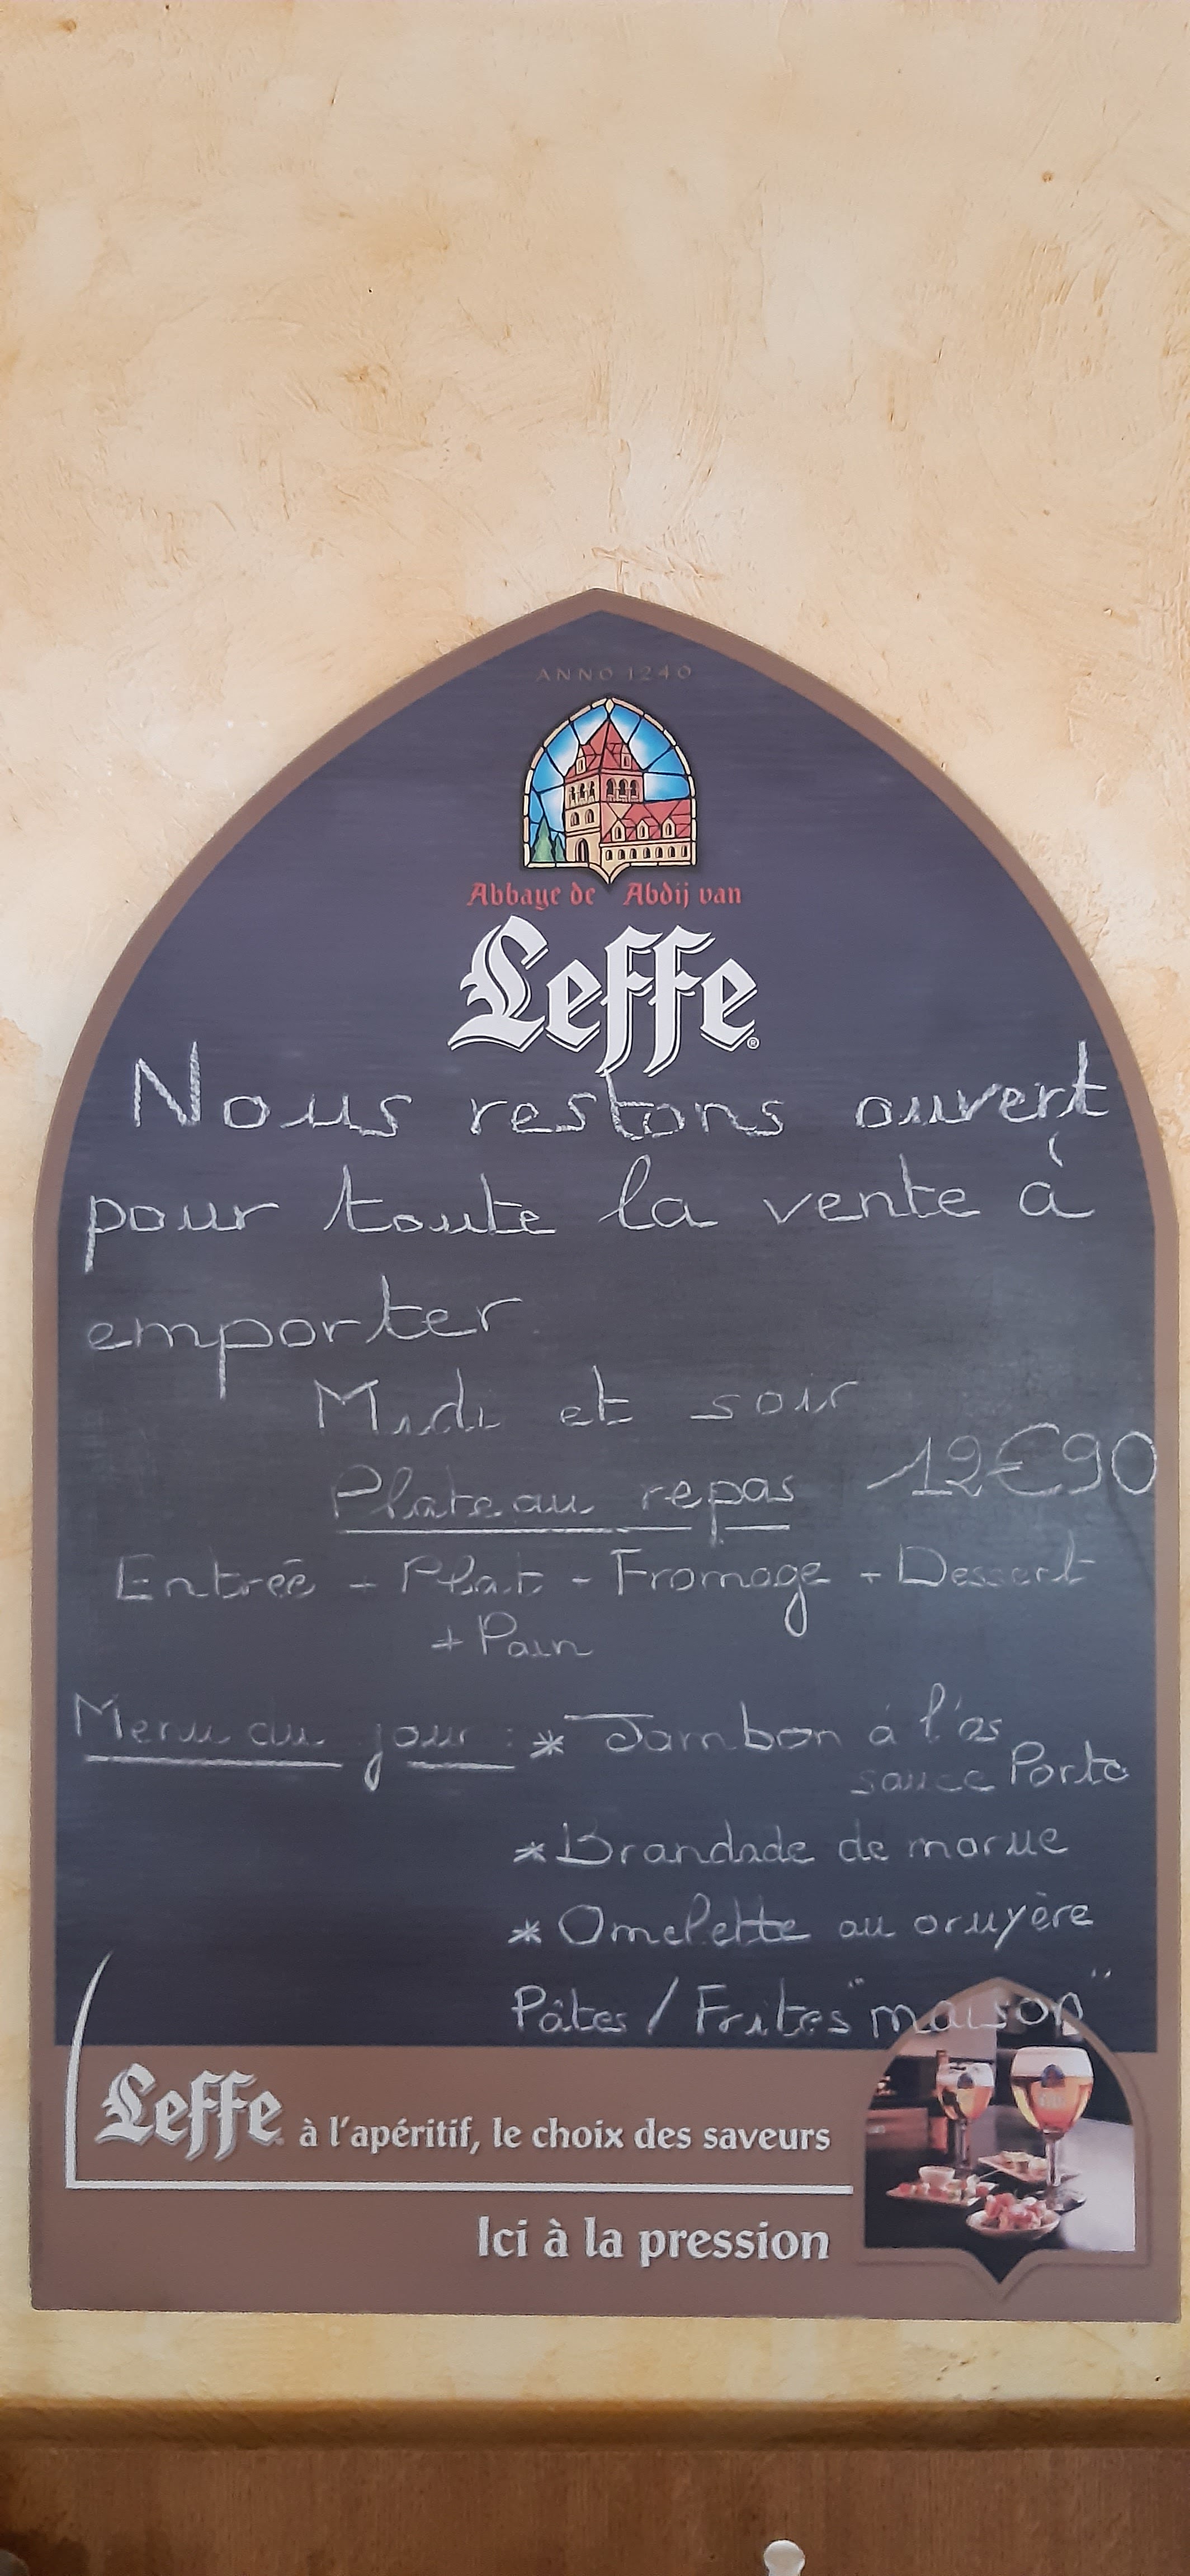 ANNO 1240
Abbaye de Abdij van
Leffe®
Nous restons ouvert
pour toute la vente à
emporter
Midi et soir
Plateau repas 12€90
Entrée + Plat + Fromage + Dessert
+ Pain
Menu du jour : * Jambon à l'os
sauce Porto
* Brandade de morue
* Omelette au gruyère
Pâtes / Frites "maison"
Leffe à l'apéritif, le choix des saveurs
Ici à la pression